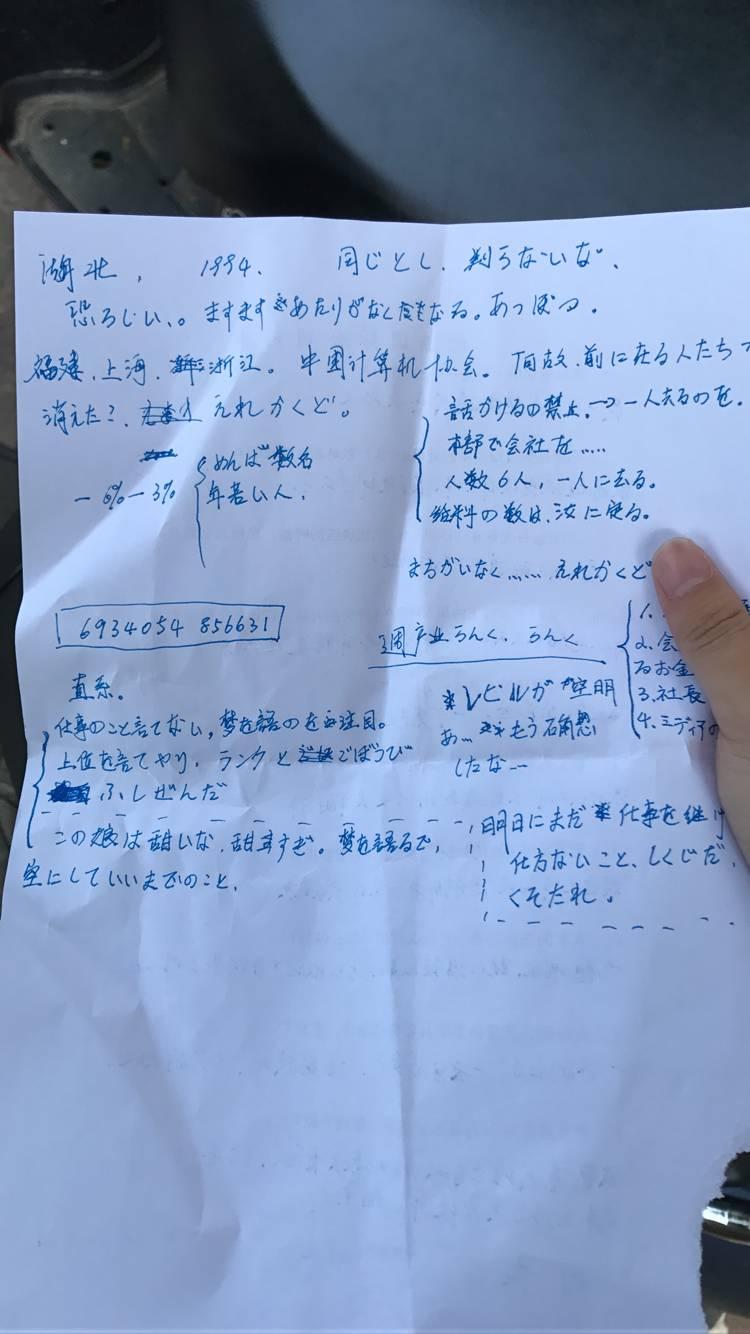 湖北, 1994. 同じとし、判らないな、
恐ろしい、。ますますあたりがなくなる。あっぽつ。
福建、上海、浙江。中国计算机协会。何故、前に在る人たち
消えた?、えれかくど。
話かけるの禁止。→一人去るのを。
本部で会社を……
人数6人,一人に去る。
給料の数は、次に定る。
めんば数名
年若い人、
-6%-3%
まちがいなく……えれかくど
6934054 856631
週产业らんく、らんく
1.
2.会
るお金
3.社長
4.ミディアの
*レビルが空明
あ…もう石角想
したな…
直系。
仕事のこと言てない,夢を語のを注目。
上位を言てやり,ランクとごぼうび
ふしぜんだ
この娘は甜いな,甜すぎ。夢を語るで,
空にしていいまでのこと,
明日にまだ仕事を継け
仕方ないこと、しくじだ,
くそたれ。